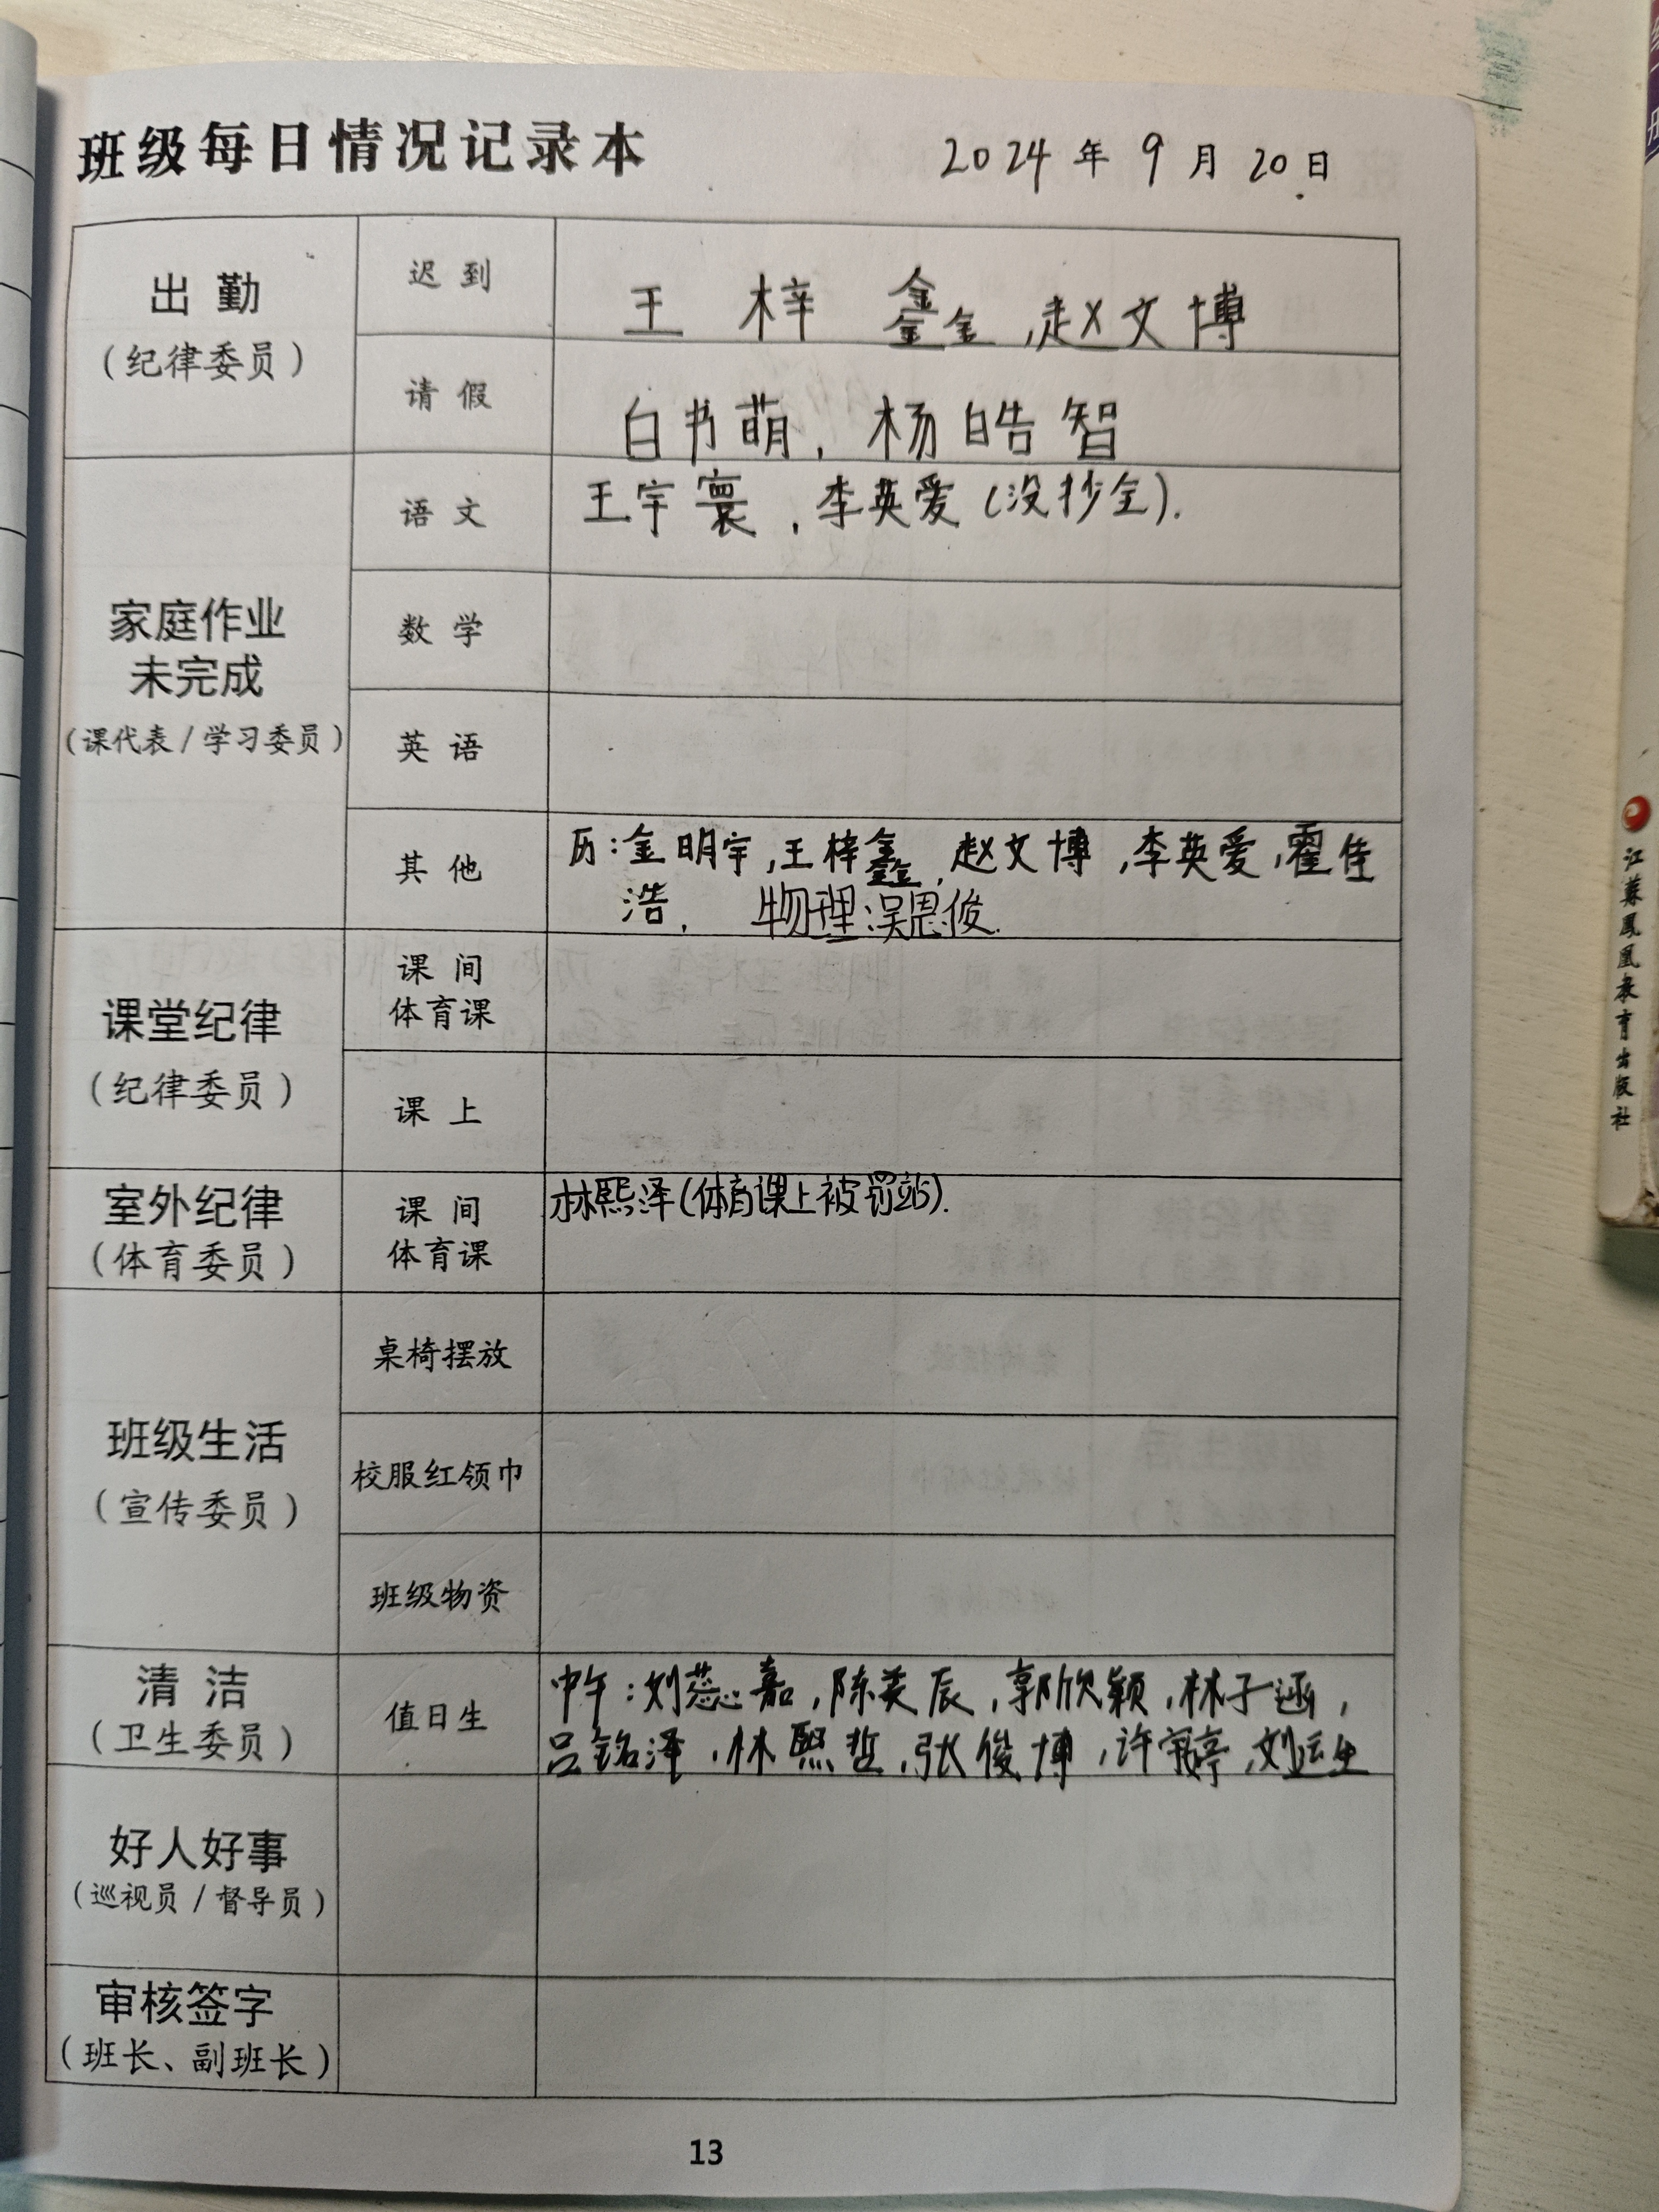 班级每日情况记录本
2024年9月20日
出勤
(纪律委员)
迟到
王梓鑫,赵文博
请假
白书萌,杨皓智
家庭作业
未完成
(课代表/学习委员)
语文
王宇寰,李英爱(没抄全).
数学
英语
其他
历:金明宇,王梓鑫,赵文博,李英爱,霍佳
浩. 物理:吴恩俊.
课堂纪律
(纪律委员)
课间
体育课
课上
室外纪律
(体育委员)
课间
体育课
林熙泽(体育课上被罚站).
班级生活
(宣传委员)
桌椅摆放
校服红领巾
班级物资
清洁
(卫生委员)
值日生
中午:刘蕊嘉,陈奕辰,郭欣颖,林子涵,
吕铭泽,林熙哲,张俊博,许婷,刘运生
好人好事
(巡视员/督导员)
审核签字
(班长、副班长)
13
江苏凤凰教育出版社